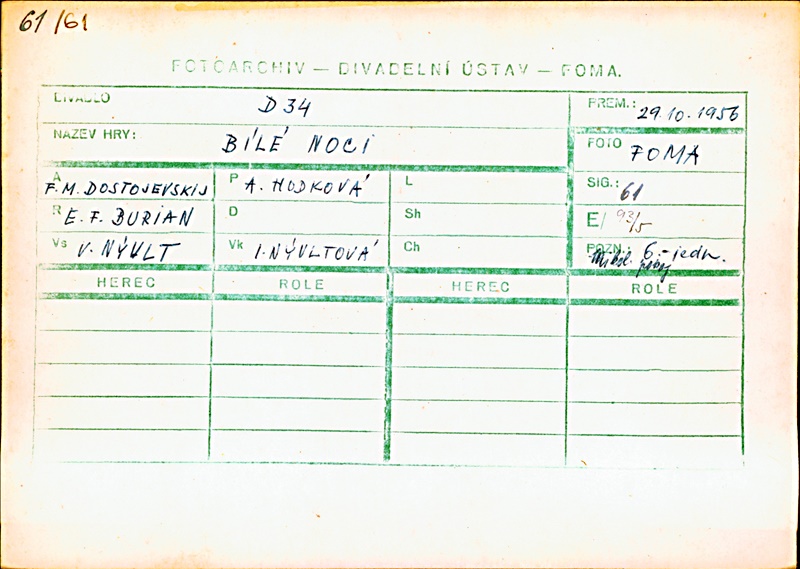 61/61
FOTOARCHIV — DIVADELNÍ ÚSTAV — FOMA.
DIVADLO D 34 PREM.: 29.10.1956
NÁZEV HRY: BÍLÉ NOCI FOTO FOMA
A F.M. DOSTOJEVSKIJ P A. HODKOVÁ L SIG.: 61
R E.F. BURIAN D Sh E/ 93/5
Vs V. NÝVLT Vk I. NÝVLTOVÁ Ch POZN.: 6 - jedn.
HEREC ROLE HEREC ROLE